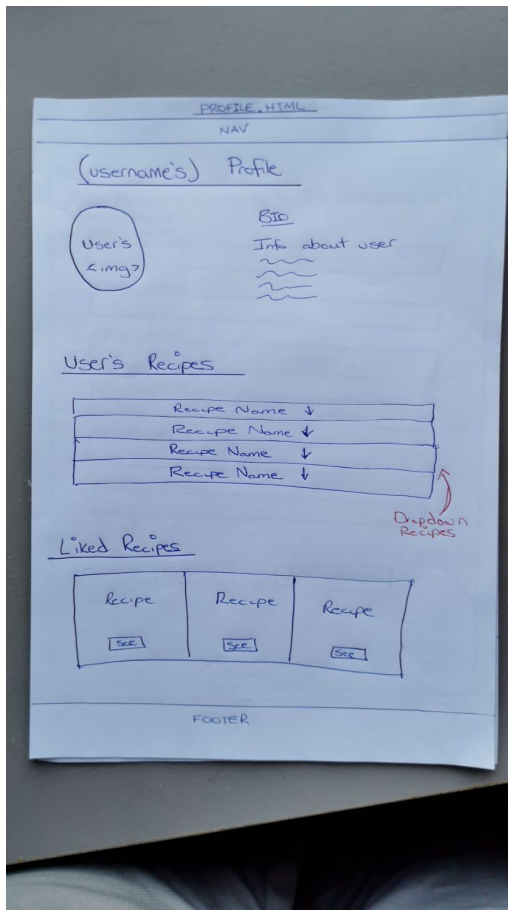 PROFILE.HTML
NAV
(username's) Profile
User's
<img>
BIO
Info about user
User's Recipes
Recipe Name ↓
Recipe Name ↓
Recipe Name ↓
Recipe Name ↓
Dropdown
Recipes
Liked Recipes
Recipe
See
Recipe
See
Recipe
See
FOOTER